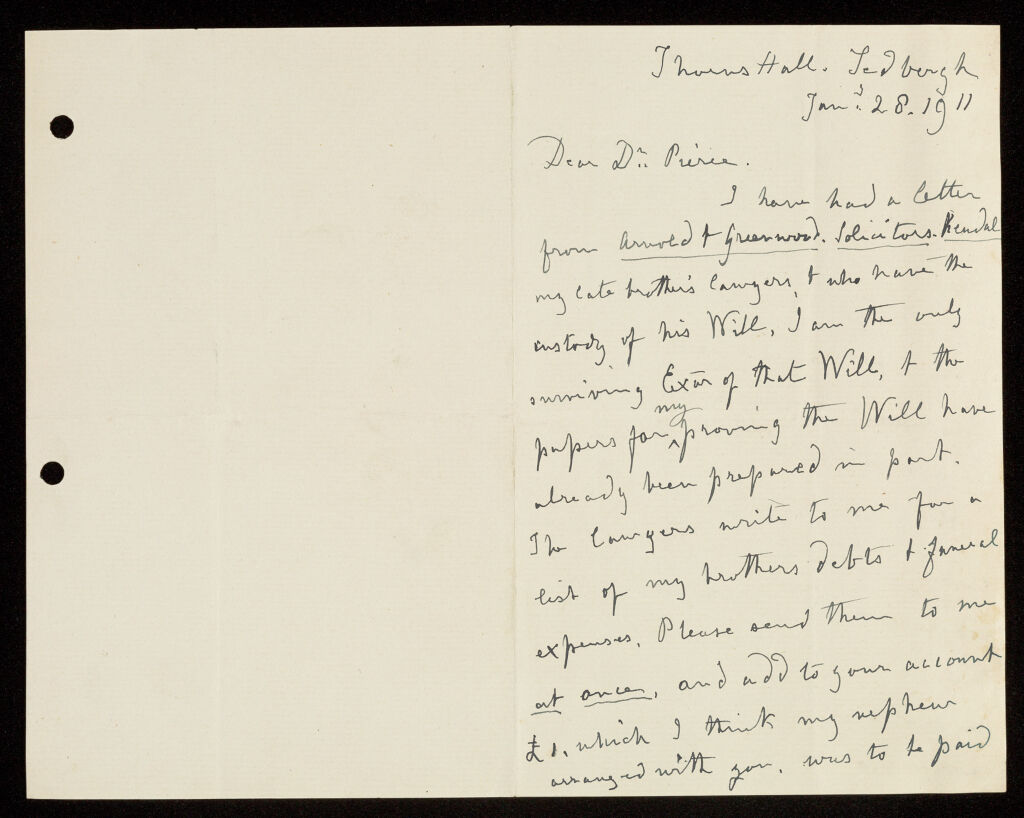 Thorns Hall. Sedbergh
Jany. 28. 1911
Dear Dr. Pierce.
I have had a letter
from Arnold & Greenwood. Solicitors. Kendal
my late brother's lawyers, & who have the
custody of his Will, I am the only
surviving Exor of that Will, & the
papers for my proving the Will have
already been prepared in part.
The lawyers write to me for a
list of my brothers debts & funeral
expenses. Please send them to me
at once, and add to your account
£1, which I think my nephew
arranged with you, was to be paid